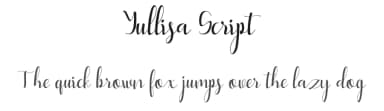 Yullisa Script
The quick brown fox jumps over the lazy dog